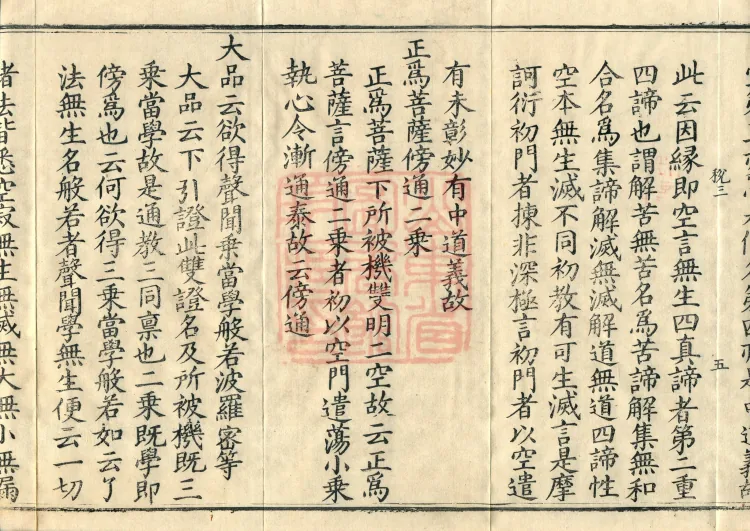 税三
五
此云因縁即空言無生四真諦者第二重
四諦也謂解苦無苦名爲苦諦解集無和
合名爲集諦解滅無滅解道無道四諦性
空本無生滅不同初教有可生滅言是摩
訶衍初門者揀非深極言初門者以空遣
有未彰妙有中道義故
正爲菩薩傍通二乗
正爲菩薩下所被機雙明二空故云正爲
菩薩言傍通二乗者初以空門遣蕩小乗
執心令漸通泰故云傍通
大品云欲得聲聞乗當學般若波羅密等
大品云下引證此雙證名及所被機既三
乗當學故是通教二同稟也二乗既學即
傍爲也云何欲得三乗當學般若如云了
法無生名般若者聲聞學無生便云一切
者法皆悉空寂無生無滅無大無小無漏